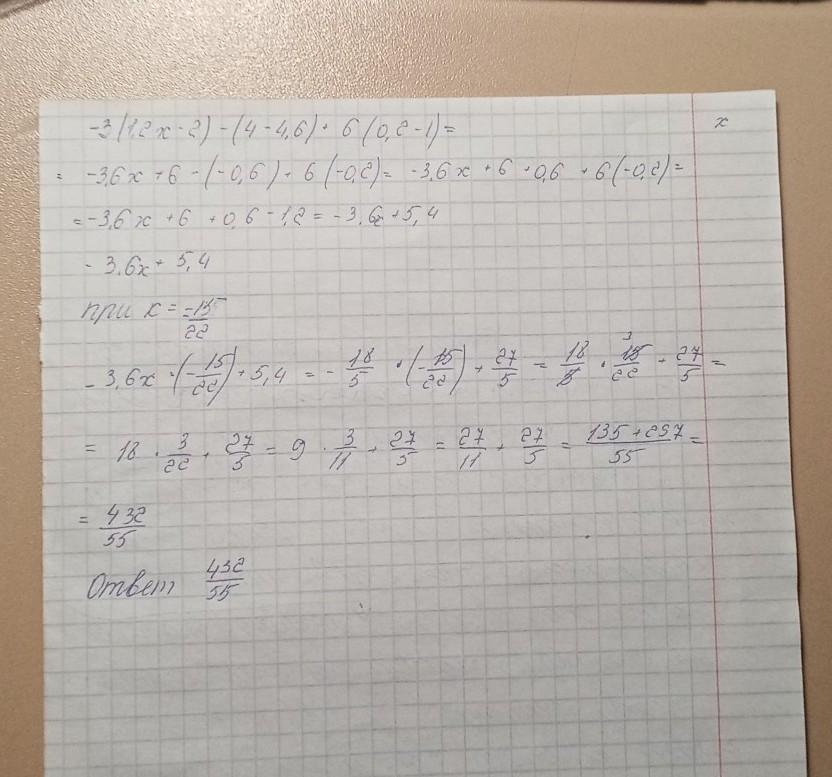 -3(1,2x-2)-(4-4,6)+6(0,2-1)= x
= -3,6x+6-(-0,6)+6(-0,2)= -3,6x+6+0,6+6(-0,2)=
=-3,6x+6+0,6-1,2=-3,6x+5,4
-3,6x+5,4
при x=-15/22
-3,6x·(-15/22)+5,4=-18/5·(-15/22)+27/5=18/5·15/22 3+27/5=
=18·3/22+27/5=9·3/11+27/5=27/11+27/5=135+297/55=
=432/55
Ответ 432/55